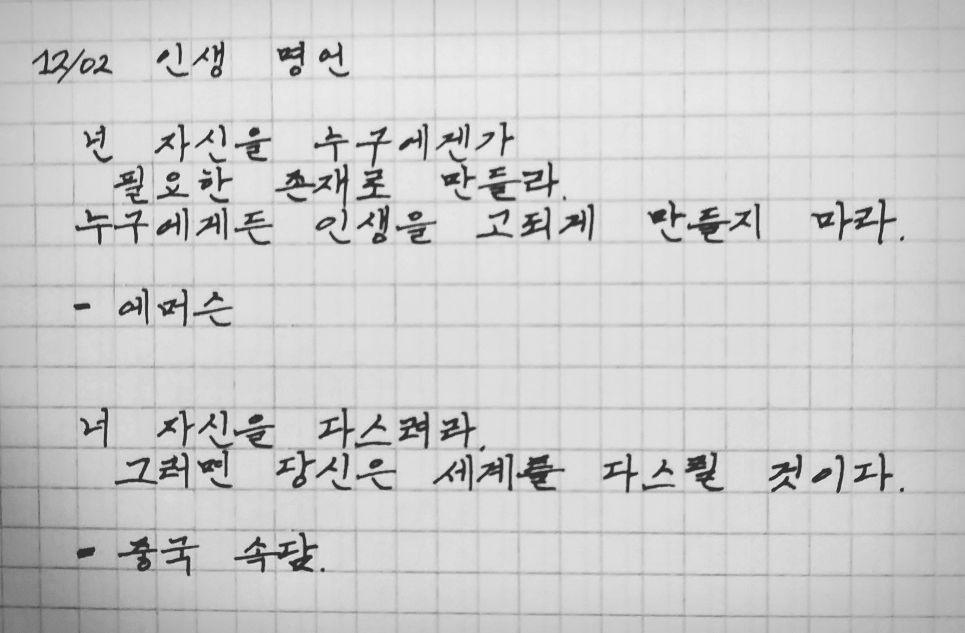 12/02 인생 명언
넌 자신을 누구에겐가
필요한 존재로 만들라.
누구에게든 인생을 고되게 만들지 마라.
- 에머슨
너 자신을 다스려라.
그러면 당신은 세계를 다스릴 것이다.
- 중국 속담.